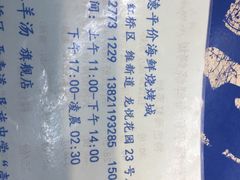 平价海鲜烧烤城
红桥区 维新道 龙悦花园 23 号
2773 1229 13821193285 150
间:上午 11:00-下午 14:00
下午 17:00-凌晨 02:30
羊汤 旗舰店
民族中学